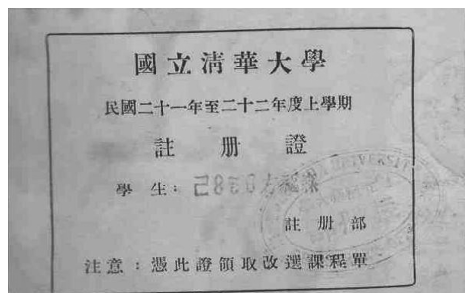 國立清華大學
民國二十一年至二十二年度上學期
註冊證
學生：
註冊部
注意：憑此證領取改選課程單
UNIVERSITY